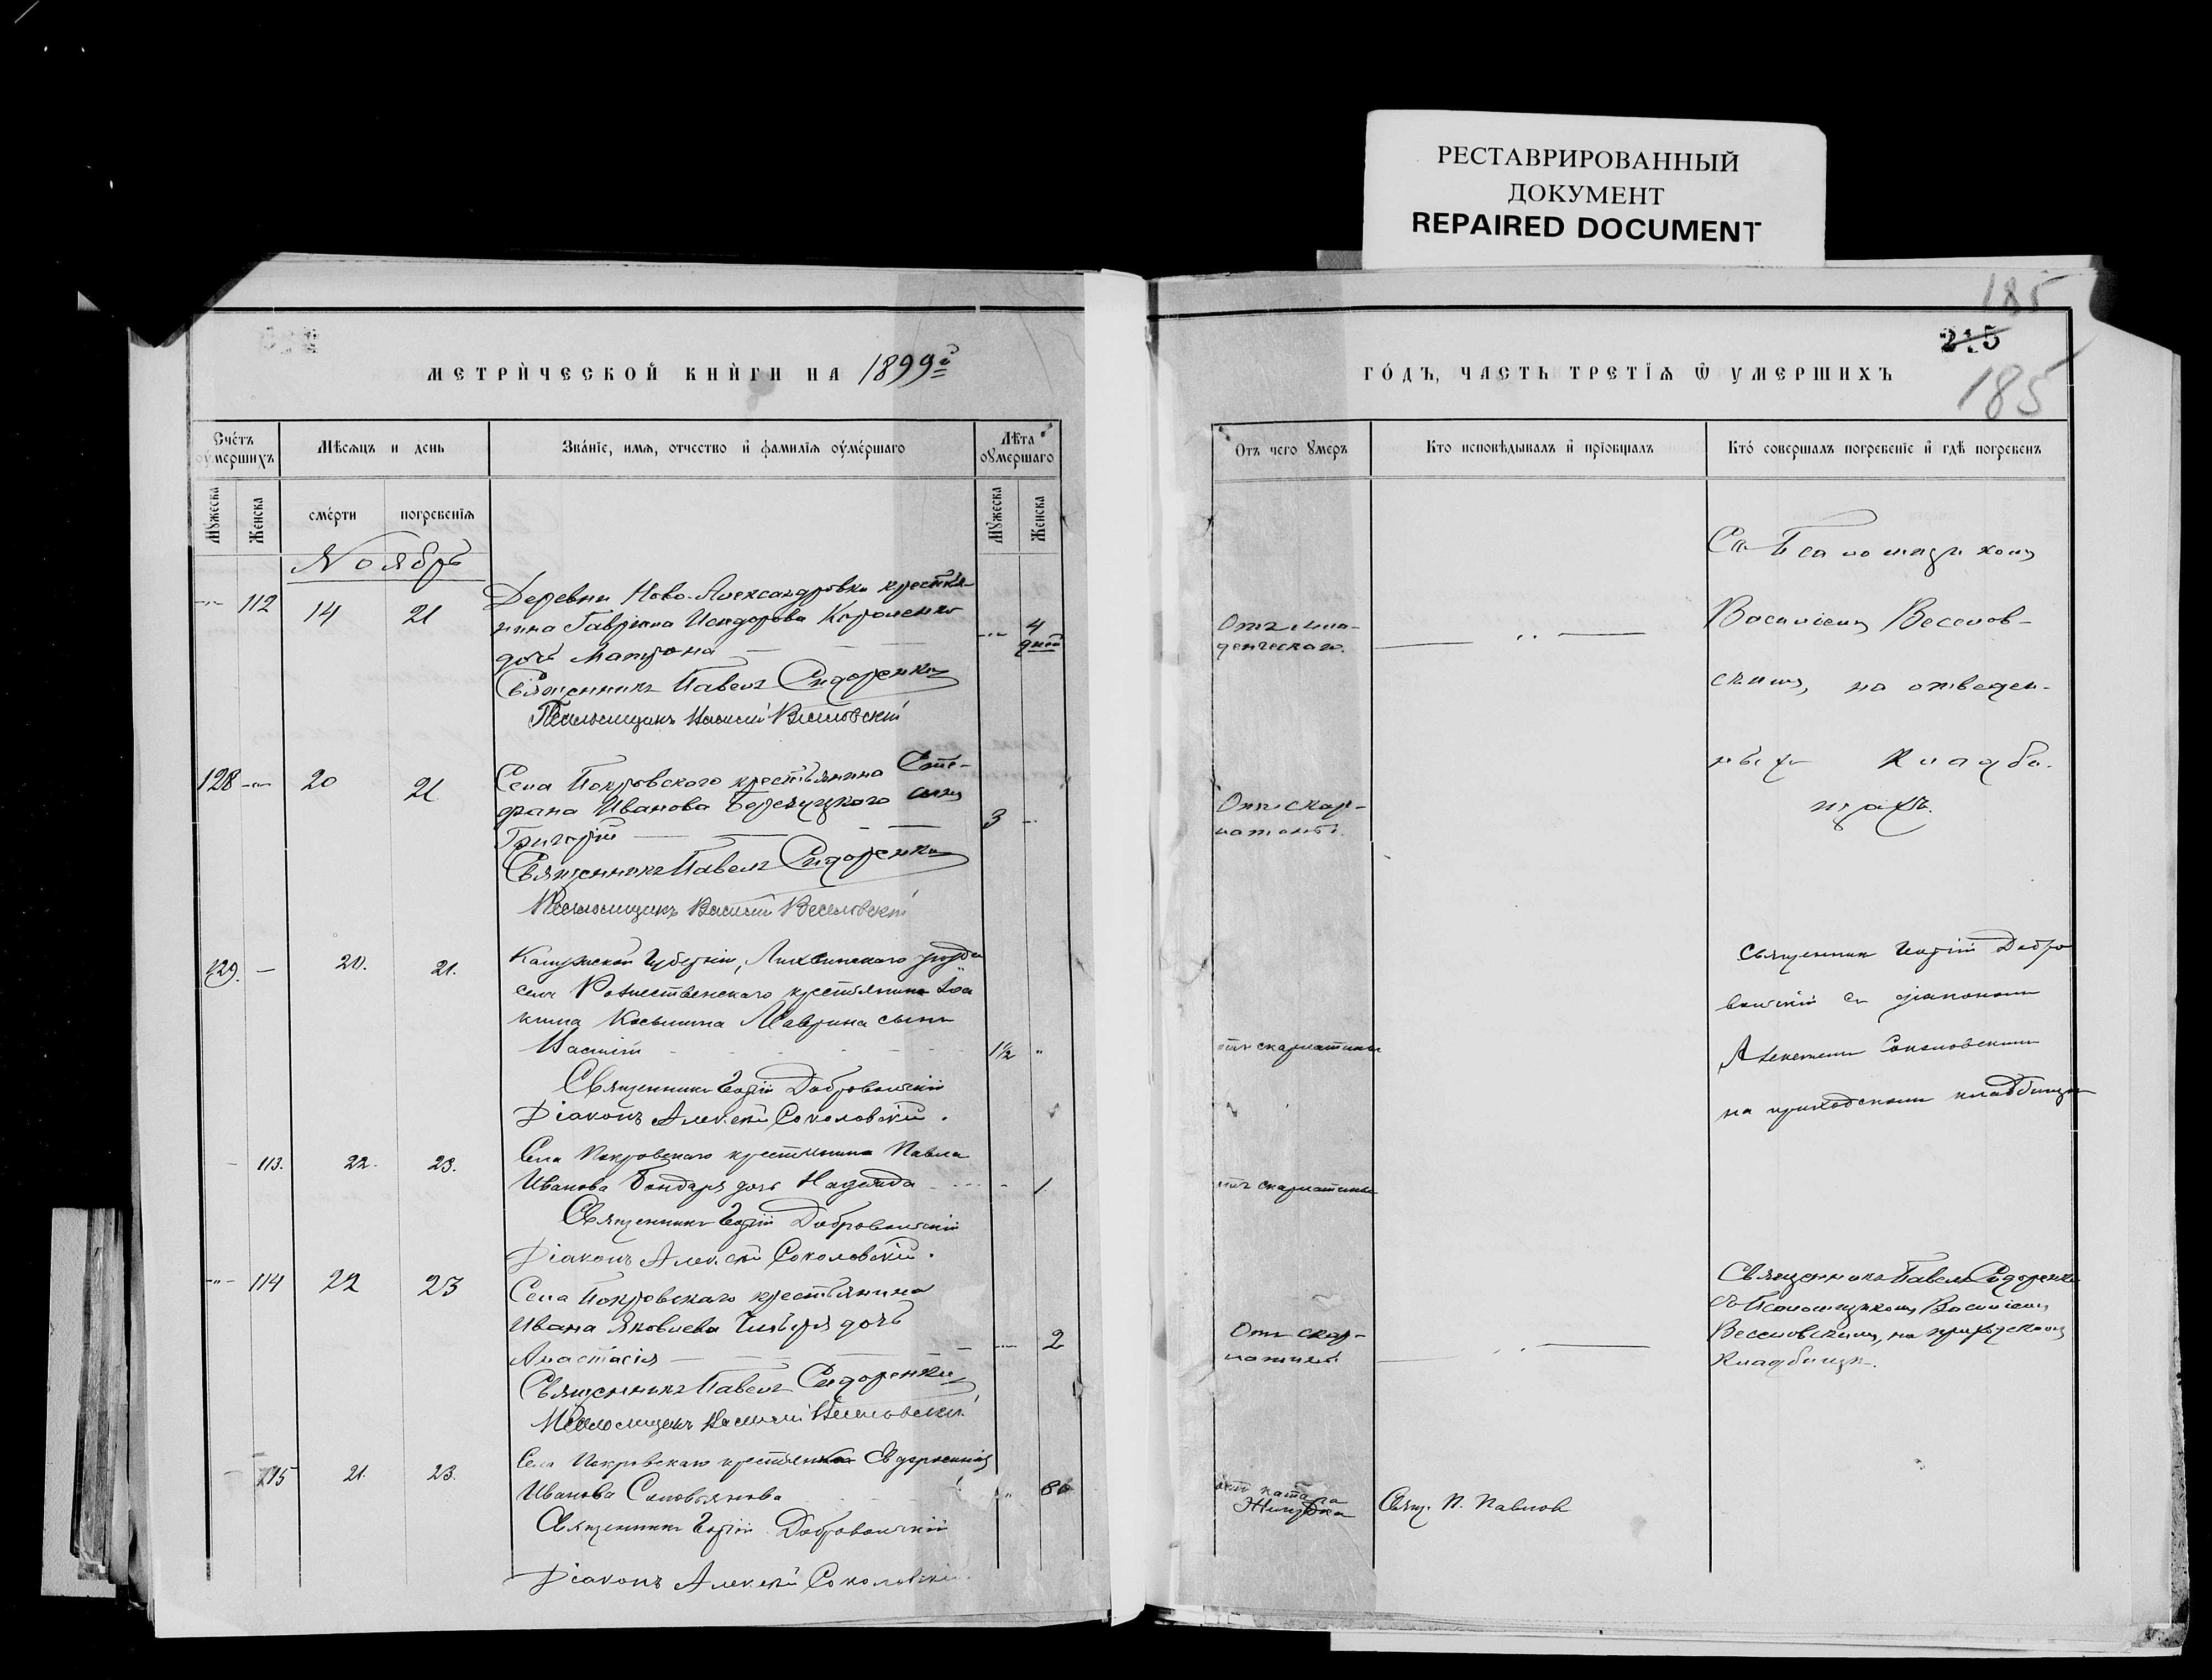 РЕСТАВРИРОВАННЫЙ
ДОКУМЕНТ
REPAIRED DOCUMENT
185
215
185
МЕТРИ́ЧЕСКОЙ КНИ́ГИ НА 1899й
ГО́ДЪ, ЧАСТЬ ТРЕТІѦ Ѿ УМЕРШИХЪ
Счетъ оумершихъ
Мѣсяцъ и день
Зва́ніе, имя, отчество и фамилія оуме́ршаго
Лѣта оумершаго
Отъ чего умеръ
Кто исповѣдывалъ и пріобщалъ
Кто́ совершалъ погребеніе и гдѣ погребенъ
Мужеска
Женска
сме́рти
погребенія
Мужеска
Женска
Ноябрь
112 14 21
Деревни Ново-Александровки крестья-
нина Гавріила Исидорова Короленко
дочь Матрона
4 дней
Священникъ Павелъ Сидоренко
Псаломщикъ Василій Веселовскій
Отъ мла-
денческаго.
Съ Псаломщикомъ
Василіемъ Веселов-
скимъ, на отведен-
ныхъ Кладби-
щахъ.
128 20 21
Села Покровскаго крестьянина Сте-
фана Иванова сынъ
Григорій
3
Священникъ Павелъ Сидоренко
Псаломщикъ Василій Веселовскій
Отъ скар-
латины.
129. 20. 21.
Калужской Губерніи, Лихвинскаго уѣзда
села Рождественскаго крестьянина Іоа
кима Косьмина Маврина сынъ
Василій
1½
Священникъ Георгій Добровольскій
Діаконъ Алексѣй Соколовскій.
отъ скарлатины
Священник Георгій Добро
вольскій съ діакономъ
Алексѣемъ Соколовскимъ
на приходскомъ кладбищѣ
113. 22. 23.
Села Покровскаго крестьянина Павла
Иванова Бондаря дочь Надежда
1
Священникъ Георгій Добровольскій
Діаконъ Алексѣй Соколовскій.
отъ скарлатины
114 22 23
Села Покровскаго крестьянина
Ивана Яковлева дочь
Анастасія
2
Священникъ Павелъ Сидоренко
Псаломщикъ Василій Веселовскій
Отъ скар-
латины.
Священникъ Павелъ Сидоренко
съ Псаломщикомъ Василіемъ
Веселовскимъ, на приходскомъ
Кладбищѣ.
115 21. 23.
Села Покровскаго крестьянка Евфросинія
Иванова
80
Священникъ Георгій Добровольскій
Діаконъ Алексѣй Соколовскій.
отъ катара
Желудка
Свящ. П. Павлов